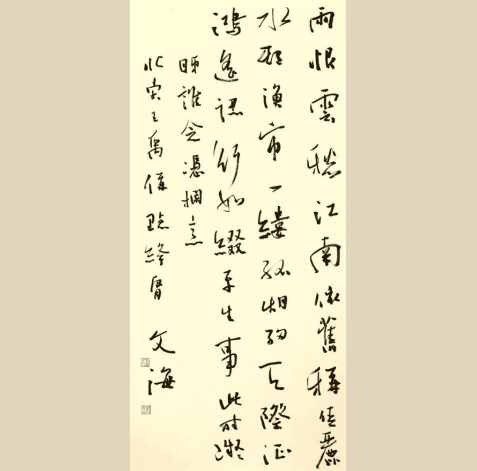 雨恨雲愁江南依舊稱佳麗
水邨漁市一縷孤烟細天際征
鴻遙認行如綴平生事此時凝
睇誰会憑欄意
北宋王禹偁點絳脣 文海